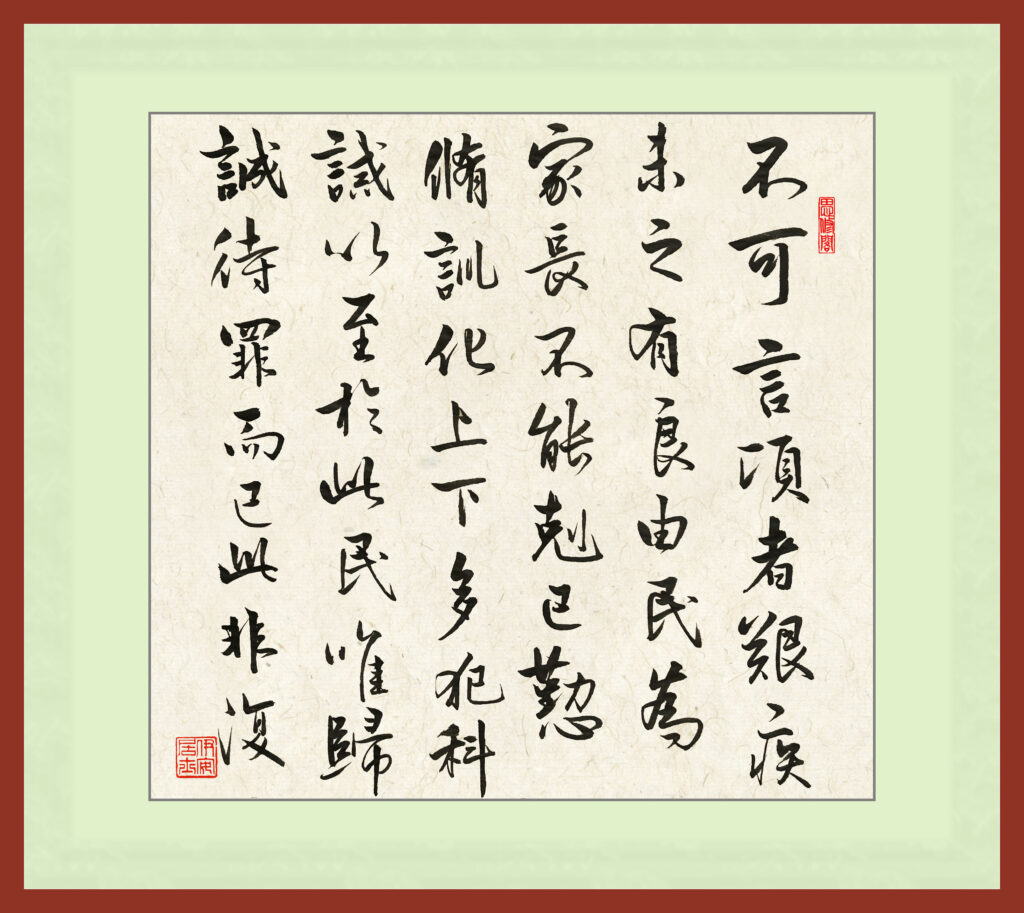 不可言項者艱疾
未之有良由民為
家長不能剋己懃
脩訓化上下多犯科
誡以至於此民唯歸
誠待罪而已此非復